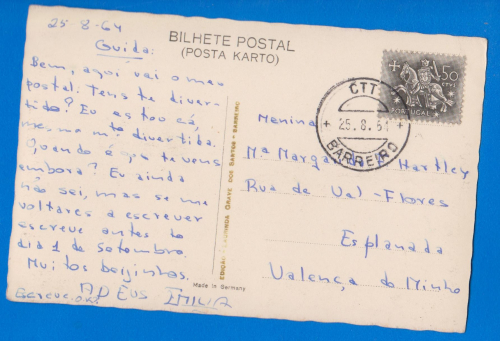 25-8-64
Guida:
Bem, aqui vai o meu
postal. Tens te diver-
tido? Eu estou cá,
mesmo mto divertida.
Quando é que te vens
embora? Eu ainda
não sei, mas se me
voltares a escrever
escreve antes do
dia 1 de Setembro.
Muitos beijinhos.
ADEUS
BILHETE POSTAL
(POSTA KARTO)
EDIÇÃO DOS SANTOS - BARREIRO
Made in Germany
50
CTVS
PORTUGAL
CTT
25.8.64
BARREIRO
Menina
Mª Margarida Hartley
Rua de Val-Flores
Esplanada
Valença do Minho